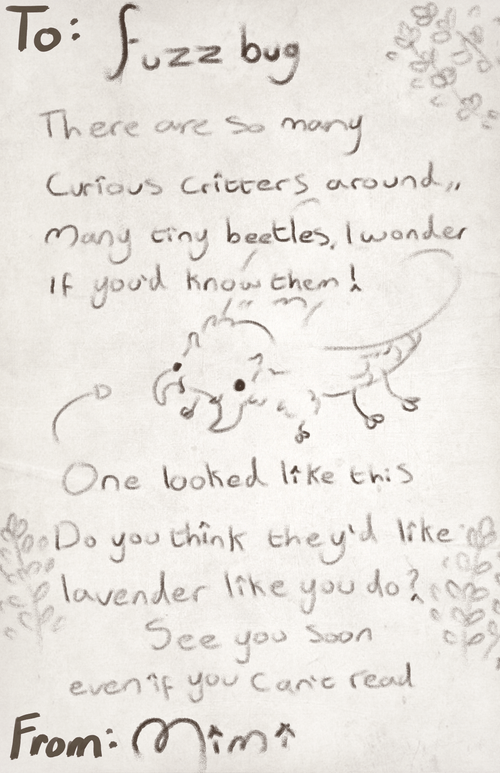 To: Fuzz bug
There are so many
Curious Critters around,,
Many tiny beetles, I wonder
If you'd know them!
One looked like this
Do you think they'd like
lavender like you do?
See you soon
even if you can't read
From: Mimi